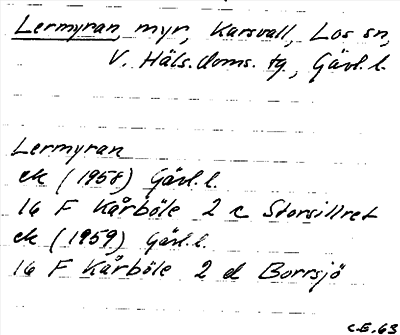 Lermyran, myr, Karsvall, Los sn,
V. Häls. doms. tg, Gävl. l.
Lermyran
ek (1958) Gävl. l.
16 F Kårböle 2 c Storsillret
ek (1959) Gävl. l.
16 F Kårböle 2 d Borrsjö
C.E. 63